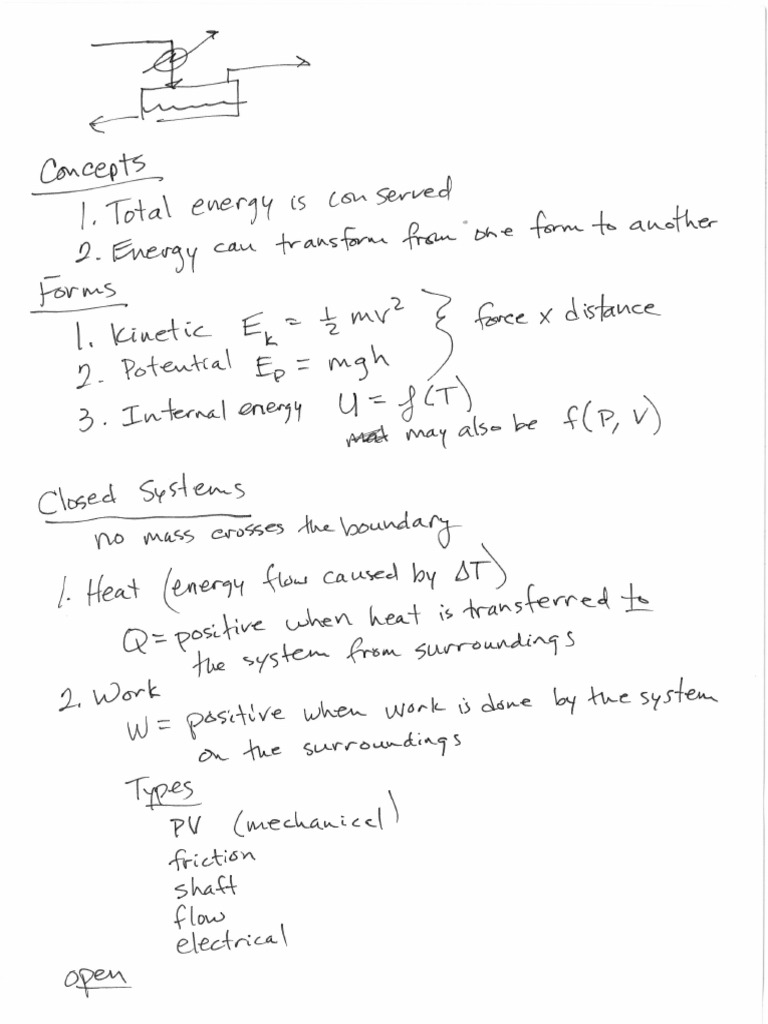 Concepts
1. Total energy is conserved
2. Energy can transform from one form to another
Forms
1. Kinetic E_k = ½ mv² } force x distance
2. Potential E_p = mgh
3. Internal energy U = f(T)
may also be f(P, V)
Closed Systems
no mass crosses the boundary
1. Heat (energy flow caused by ΔT)
Q = positive when heat is transferred to
the system from surroundings
2. Work
W = positive when work is done by the system
on the surroundings
Types
PV (mechanical)
friction
shaft
flow
electrical
open